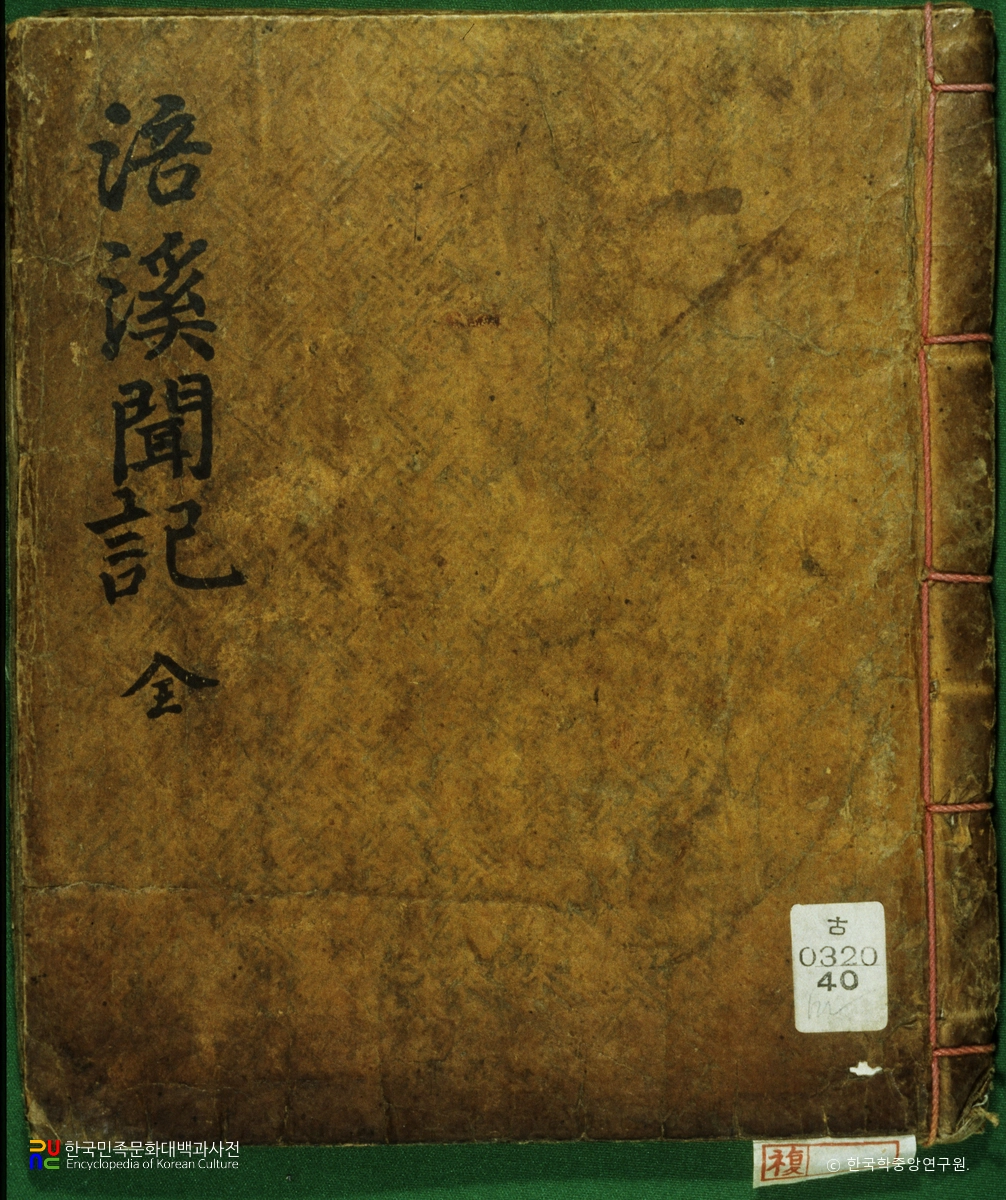 涪溪聞記 全
古
0320
40
複
한국민족문화대백과사전
Encyclopedia of Korean Culture
© 한국학중앙연구원.